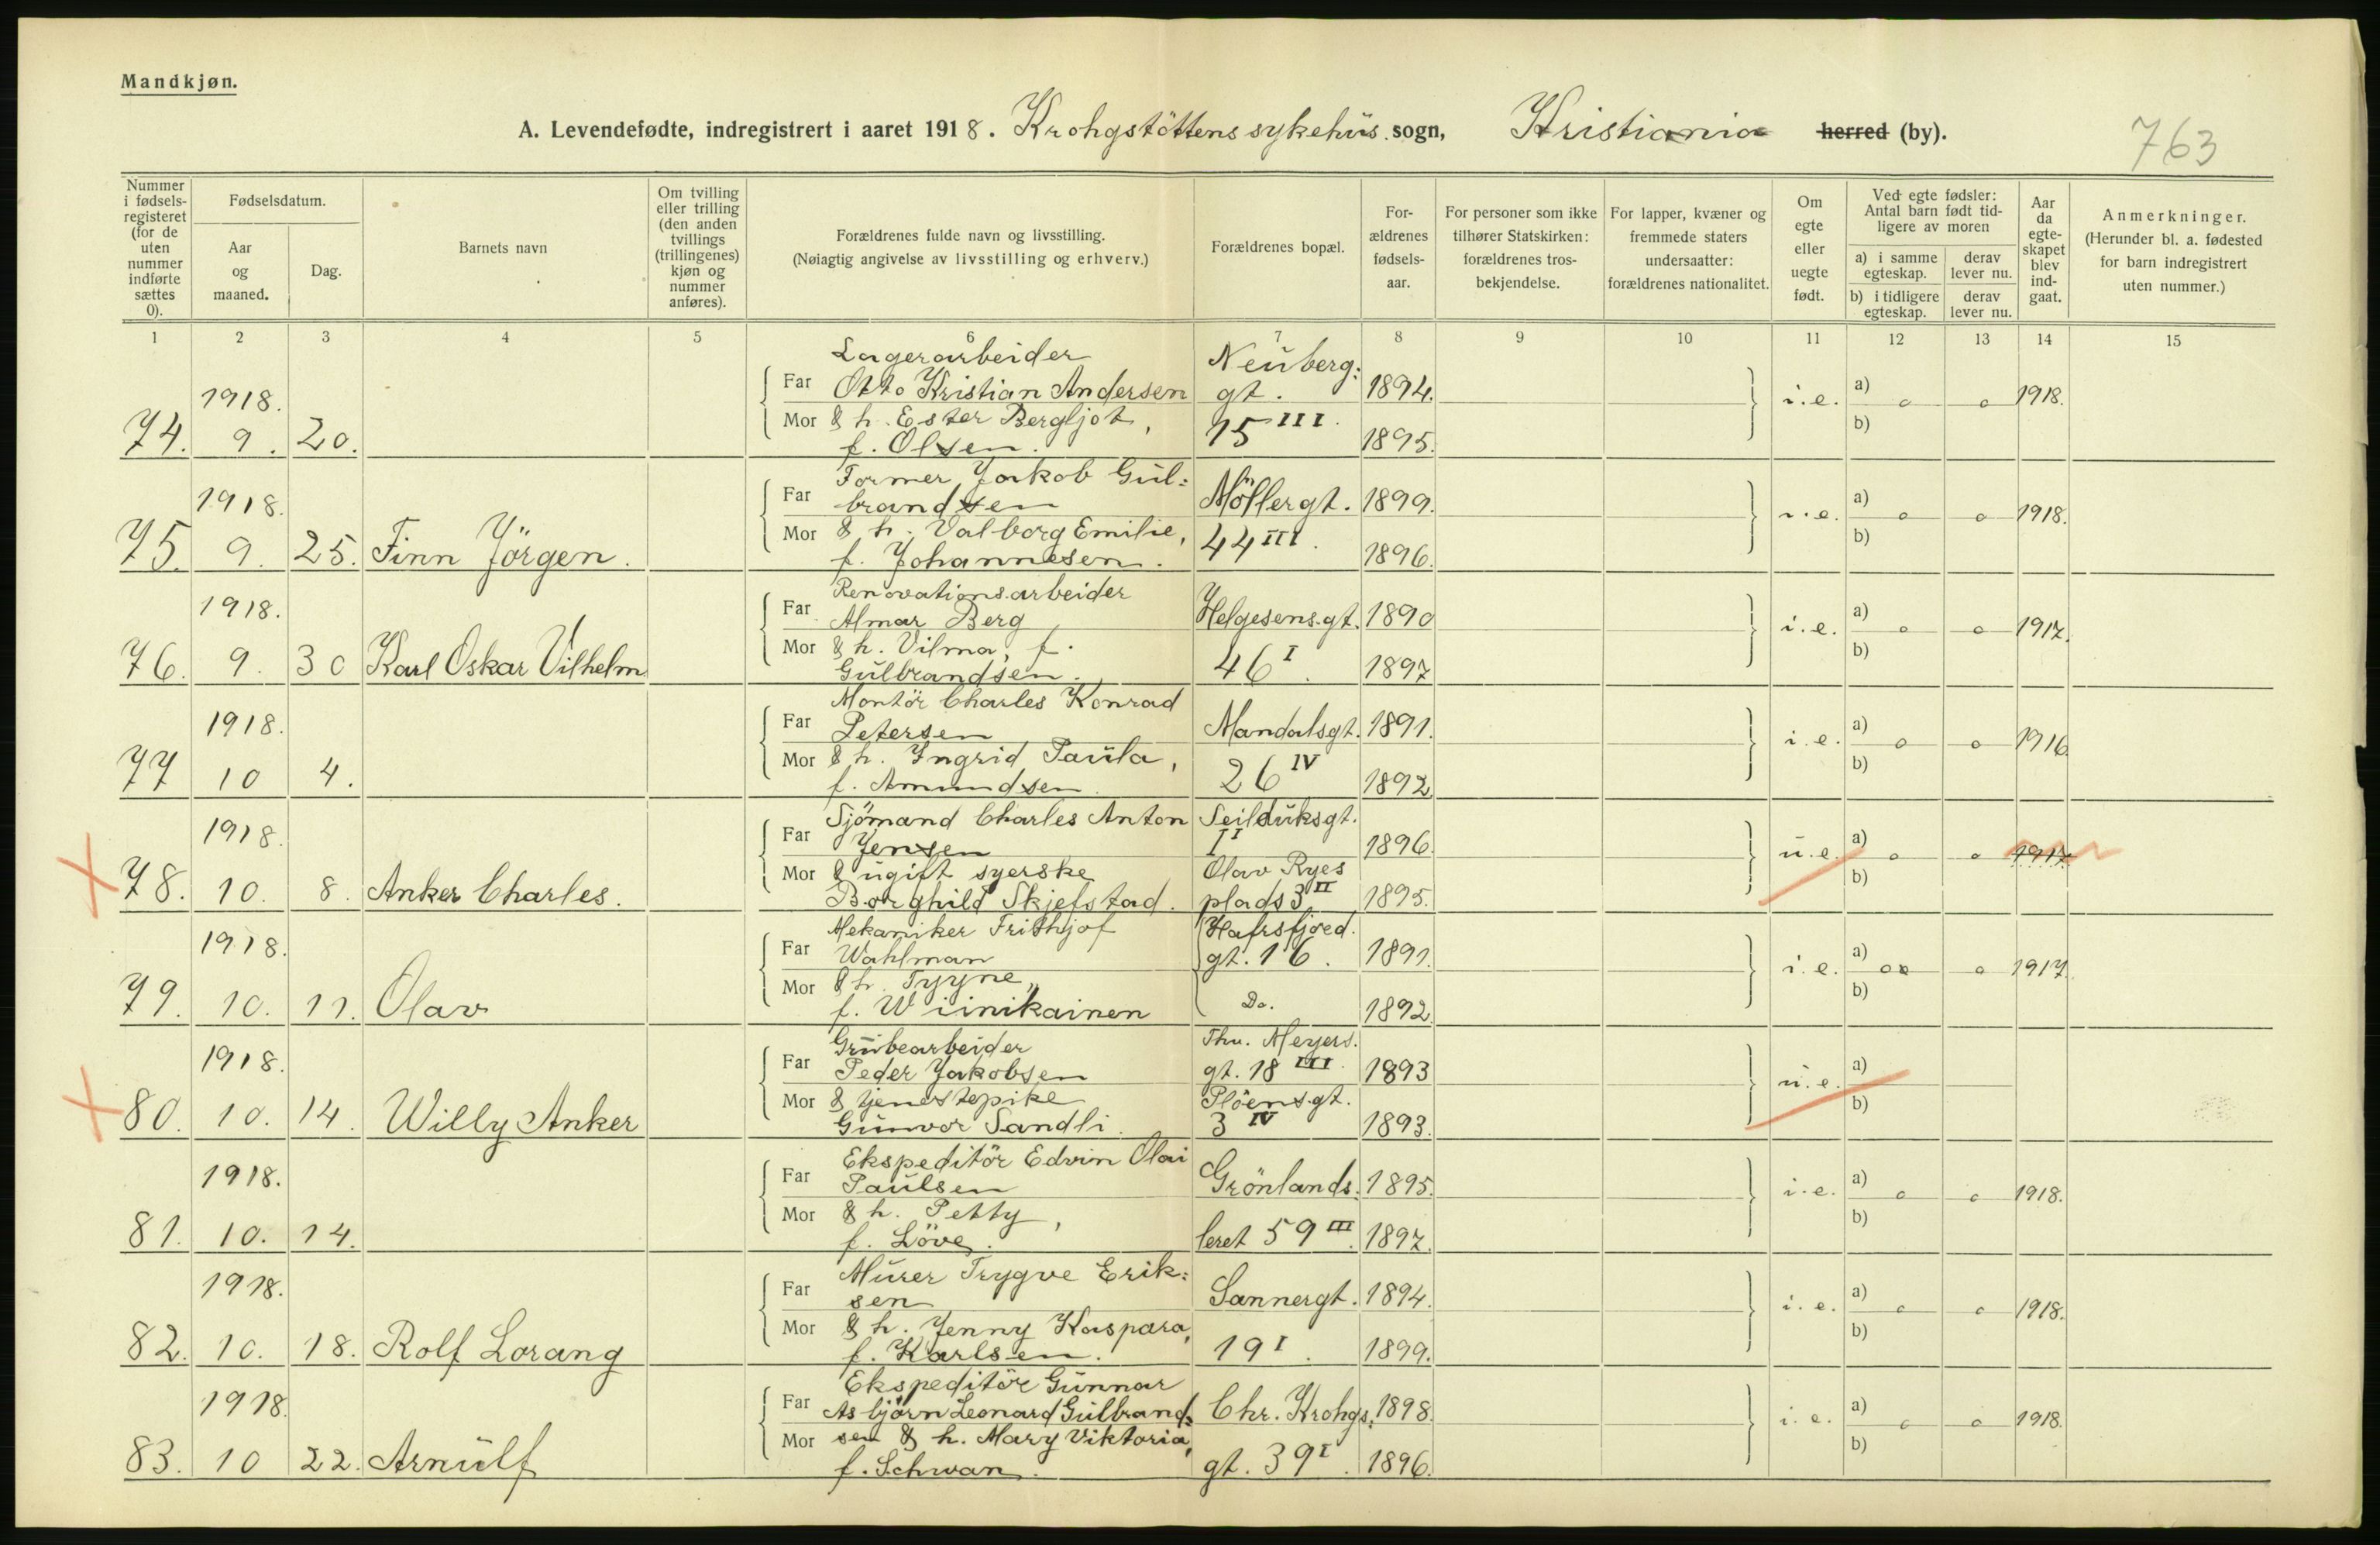 Mandkjøn.
A. Levendefødte, indregistrert i aaret 1918. Krohgstöttens sykehus. sogn, Kristiania herred (by).
763
Nummer i fødsels-registeret (for de uten nummer indførte sættes 0).
Fødselsdatum.
Aar og maaned.
Dag.
Barnets navn
Om tvilling eller trilling (den anden tvillings (trillingenes) kjøn og nummer anføres).
Forældrenes fulde navn og livsstilling.
(Nøiagtig angivelse av livsstilling og erhverv.)
Forældrenes bopæl.
For-ældrenes fødsels-aar.
For personer som ikke tilhører Statskirken: forældrenes tros-bekjendelse.
For lapper, kvæner og fremmede staters undersaatter: forældrenes nationalitet.
Om egte eller uegte født.
Ved egte fødsler: Antal barn født tid-ligere av moren
a) i samme egteskap.
derav lever nu.
b) i tidligere egteskap.
derav lever nu.
Aar da egte-skapet blev ind-gaat.
Anmerkninger.
(Herunder bl. a. fødested for barn indregistrert uten nummer.)
1 2 3 4 5 6 7 8 9 10 11 12 13 14 15
Lagerarbeider Neuberg:
1918. Far Otto Kristian Andersen gt. 1894. i.e. a) o o 1918.
Mor & h. Ester Bergljot, 15 III. b)
74. 9. 20. f. Olsen. 1895.
Former Jakob Gul:
1918. Far brandsen Möllergt. 1899. i.e. a) o o 1918.
Mor & h. Valborg Emilie, 44 III. b)
75. 9. 25. Finn Jörgen. f. Johannesen. 1896.
Renovationsarbeider
1918. Far Almar Berg Helgesens.gt. 1890 i.e. a) o o 1917.
Mor & h. Vilma, f. 46 I. b)
76. 9. 30 Karl Oskar Vilhelm Gulbrandsen. 1897
Montör Charles Konrad
1918. Far Petersen Mandalsgt. 1891. i.e. a) o o 1916
Mor & h. Ingrid Paula, 26 IV b)
77 10 4. f. Amundsen. 1892
Sjömand Charles Anton Seilduksgt.
1918. Far Jensen 1 I 1896. u.e. a) o o 1917
Mor & ugift syerske Olav Ryes b)
78. 10. 8. Anker Charles. Borghild Skjefstad. plads 3 II 1895.
Mekaniker Frithjof Hafrsfjord.
1918. Far Wahlman gt. 16. 1891. i.e. a) o o 1917.
Mor & h. Tyyne, Do. b)
79. 10. 11. Olav f. Wiinikainen 1892
Grubearbeider Thv. Meyers.
1918. Far Peder Jakobsen gt. 18 III. 1893 u.e. a)
Mor & tjenestepike Plöens.gt. b)
80. 10. 14. Willy Anker Gunvor Sandli. 3 IV 1893.
Ekspeditör Edvin Olai
1918. Far Paulsen Grönlands: 1895. i.e. a) o o 1918.
Mor & h. Petty, b)
81. 10. 14. f. Löve. leret 59 III. 1897.
Murer Trygve Erik:
1918. Far sen Sannergt. 1894. i.e. a) o o 1918.
Mor & h. Jenny Kaspara, b)
82. 10. 18. Rolf Lorang f. Karlsen. 19 I. 1899.
Ekspeditör Gunnar
1918. Far Asbjörn Leonard Gulbrand: Chr. Krohgs: 1898. i.e. a) o o 1918.
Mor sen & h. Mary Viktoria, b)
83. 10 22. Arnulf f. Schwan. gt. 39 I. 1896.